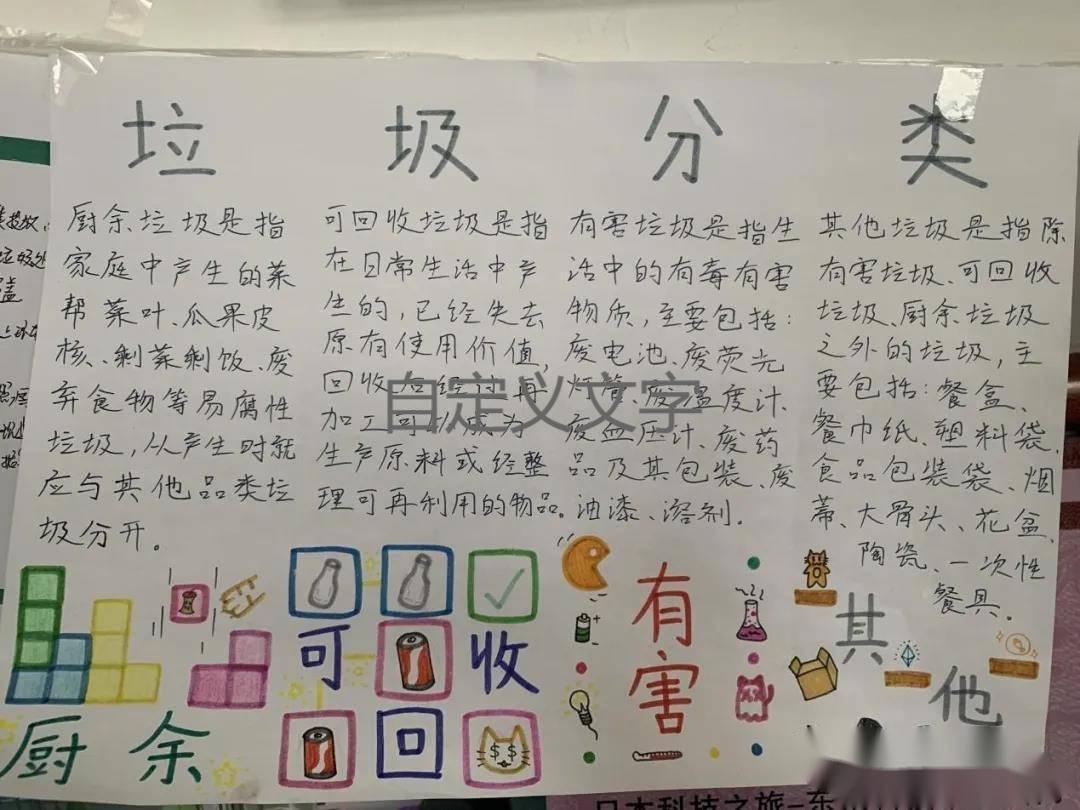 垃 圾 分 类
厨余垃圾是指
家庭中产生的菜
帮菜叶、瓜果皮
核、剩菜剩饭、废
弃食物等易腐性
垃圾,从产生时就
应与其他品类垃
圾分开。
可回收垃圾是指
在日常生活中产
生的,已经失去
原有使用价值,
回收后经过再
加工可以成为
生产原料或经整
理可再利用的物品。
有害垃圾是指生
活中的有毒有害
物质,主要包括:
废电池、废荧光
灯管、废温度计、
废血压计、废药
品及其包装、废
油漆、溶剂.
其他垃圾是指除
有害垃圾、可回收
垃圾、厨余垃圾
之外的垃圾,主
要包括:餐盒、
餐巾纸、塑料袋、
食品包装袋、烟
蒂、大骨头、花盆、
陶瓷、一次性
餐具.
自定义文字
厨 余
可 收
回
有
害
其
他
日本科技之旅-东